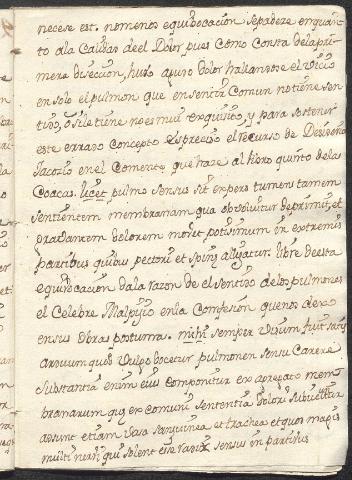 necese est. no menos equibocacion se padeze en quan
to ala Causa deel Dolor pues como Consta dela pri
mera diseccion, hubo agudo dolor hallandose el Vicio
en solo el pulmon que en sentir Comun no tiene sen
tido, ô si le tiene no es mui exquisito, y para sostener
este errado concepto es preciso el recurso de
Jacotio en el Comento que haze al libro quinto de las
Coacas. licet pulmo sensus sit expers tumens tamen
sentientem membranam qua obvolvitur deprimit, et
dolorem movet potisimum in extremis
partibus quibus pectori et spinæ alligatur. libre de esta
equibocacion da la razon de el sentido de los pulmones
el Celebre Malpijio en la Confesion que nos dexo
en sus Obras postumas. mihi semper visum fuit
quod vulgo docetur pulmonem sensu carere
substantia enim eius componitur ex agregato mem
branarum quæ ex comuni sententia dolori subiiciuntur
adsunt etiam vasa sanguinea et trachea et quod magis
mihi qui solent esse sensus in partibus